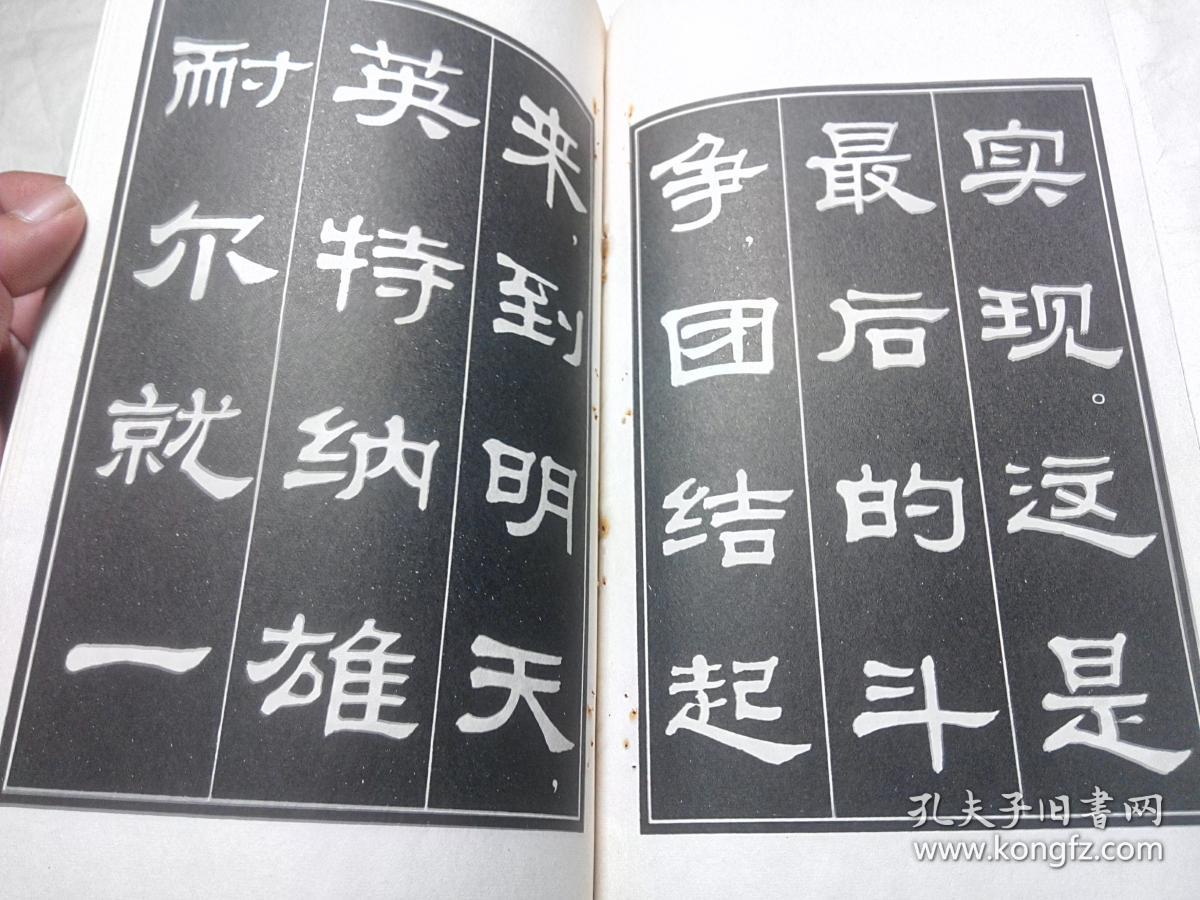 实现。这是
最后的斗
争，团结起
来，到明天，
英特纳雄
耐尔就一
孔夫子旧書网
www.kongfz.com